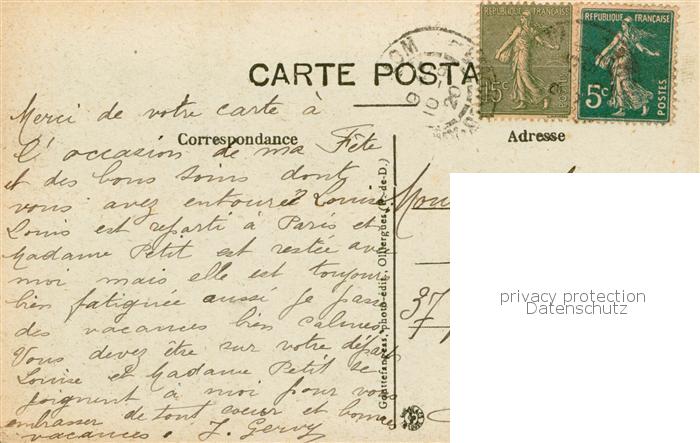 CARTE POSTA
RÉPUBLIQUE FRANÇAISE
15c
RÉPUBLIQUE FRANÇAISE
5c
POSTES
Correspondance
Adresse
Merci de votre carte à
l'occasion de ma Fête
et des bons soins dont
vous avez entouré Louise
Louis est reparti à Paris et
Madame Petit est restée avec
moi mais elle est toujours
bien fatiguée aussi je passe
des vacances bien calmes
Vous devez être sur votre départ
Louise et Madame Petit se
joignent à moi pour vous
embrasser de tout coeur et bonnes
vacances. J. Gervy
Gouttefangeas, photo-édit., Olliergues (P.-de-D.)
Mon
37
privacy protection
Datenschutz